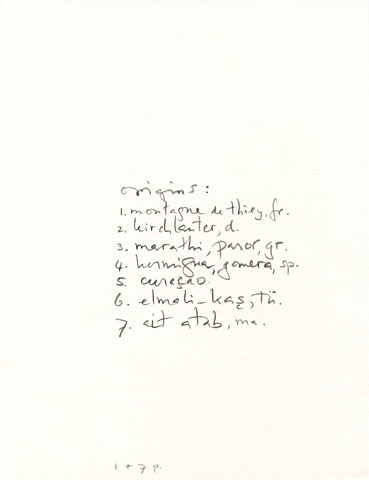 origins:
1. montagne de thiey, fr.
2. kirchlauter, d.
3. marathi, paros, gr.
4. hermigua, gomera, sp.
5. curaçao
6. elmali-kaş, tü.
7. ait atab, ma.
1 + 7 p.